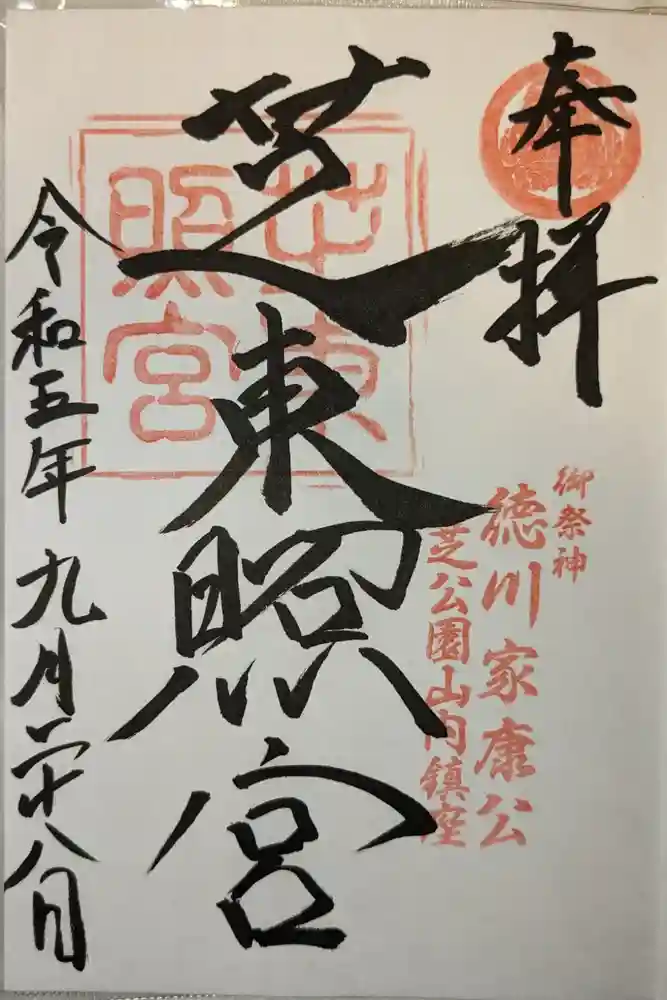 奉拝
御祭神
徳川家康公
芝公園山内鎮座
芝東照宮
芝東照宮
令和五年九月二十八日